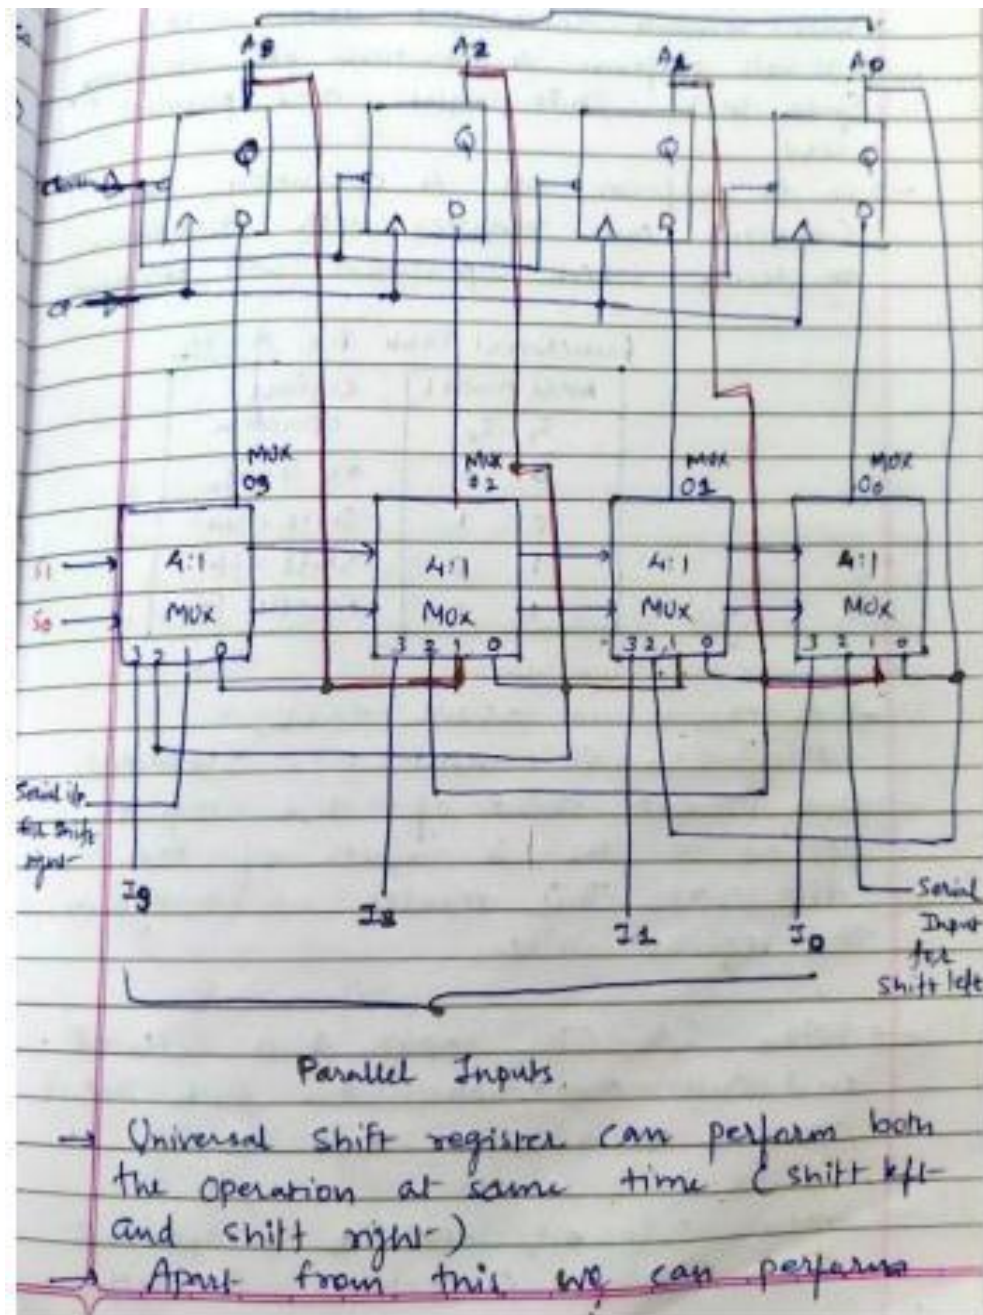 A3 A2 A1 A0
Q Q Q Q
D D D D
CP
MUX MUX MUX MUX
03 02 01 00
S1 4:1 4:1 4:1 4:1
S0 MUX MUX MUX MUX
3 2 1 0 3 2 1 0 3 2 1 0 3 2 1 0
Serial i/p
for shift
right
I3 I2 I1 I0
Serial
Input
for
Shift left
Parallel Inputs.
→ Universal shift register can perform both
the operation at same time (shift left
and shift right)
→ Apart from this we can perform